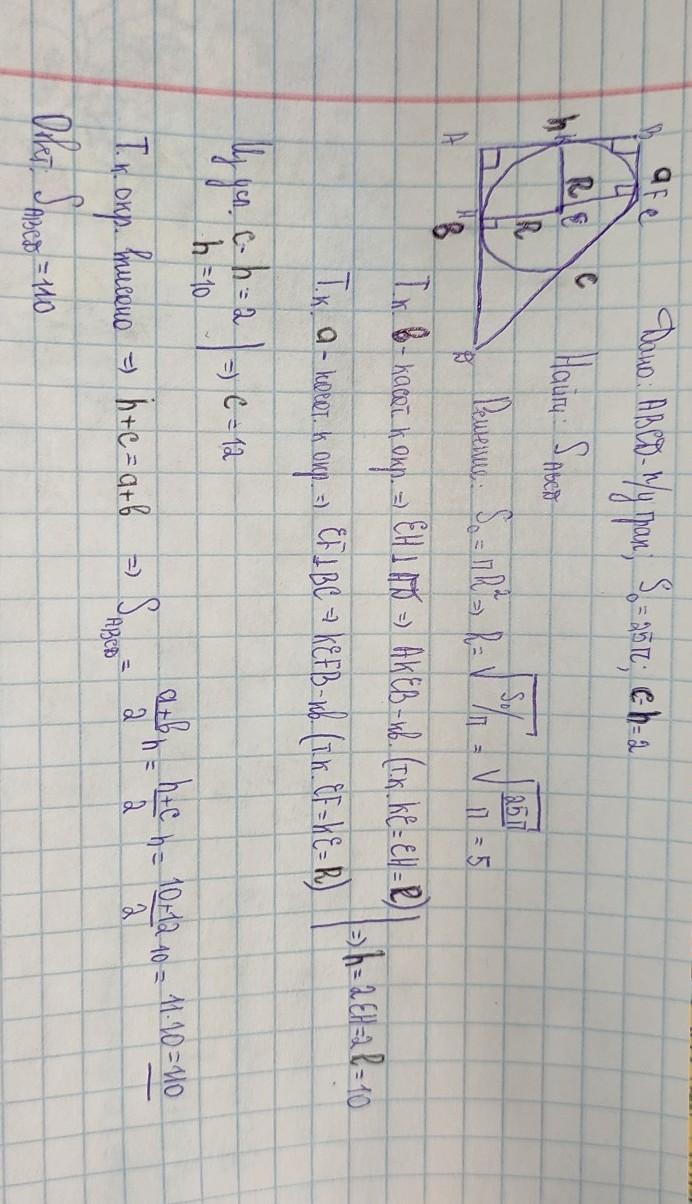 Дано: ABCD - п/у трап; S₀ = 25π; c-h=2
Найти: S ABCD
B a F C
h K R E c
R
A H B D
Решение: S₀ = πR² ⇒ R = √S₀/π = √25π/π = 5
Т.к. в - касат. к окр. ⇒ EH ⊥ AD ⇒ AKEB - кв. (т.к. KE = EH = R)
Т.к. a - касат. к окр. ⇒ EF ⊥ BC ⇒ KEFB - кв. (т.к. EF = KE = R)
⇒ h = 2EH = 2R = 10
Из усл. c - h = 2
h = 10
⇒ c = 12
Т.к. окр. вписана ⇒ h+c = a+b ⇒ S ABCD = a+b/2 h = h+c/2 h = 10+12/2 10 = 11·10 = 110
Ответ: S ABCD = 110